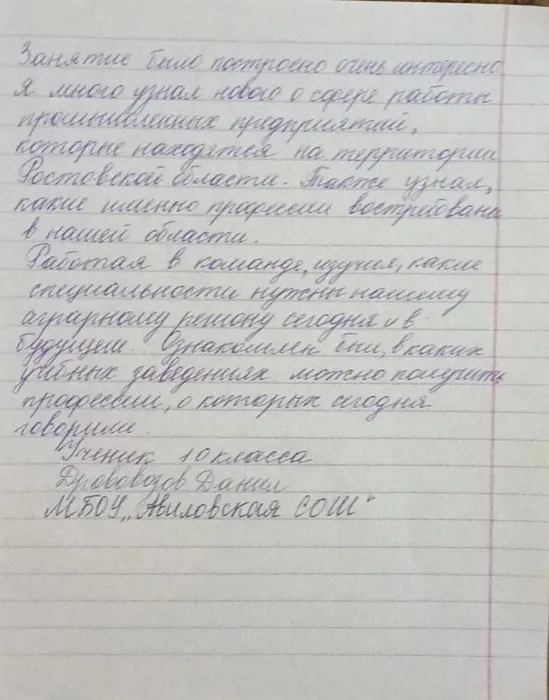 Занятие было построено очень интересно.
Я много узнал нового о сфере работы
промышленных предприятий,
которые находятся на территории
Ростовской области. Также узнал,
какие именно профессии востребованы
в нашей области.
Работая в команде, изучил, какие
специальности нужны нашему
аграрному региону сегодня и в
будущем. Ознакомлен был, в каких
учебных заведениях можно получить
профессии, о которых сегодня
говорили.
Ученик 10 класса
Дрововозов Данил
МБОУ „Авиловская СОШ"